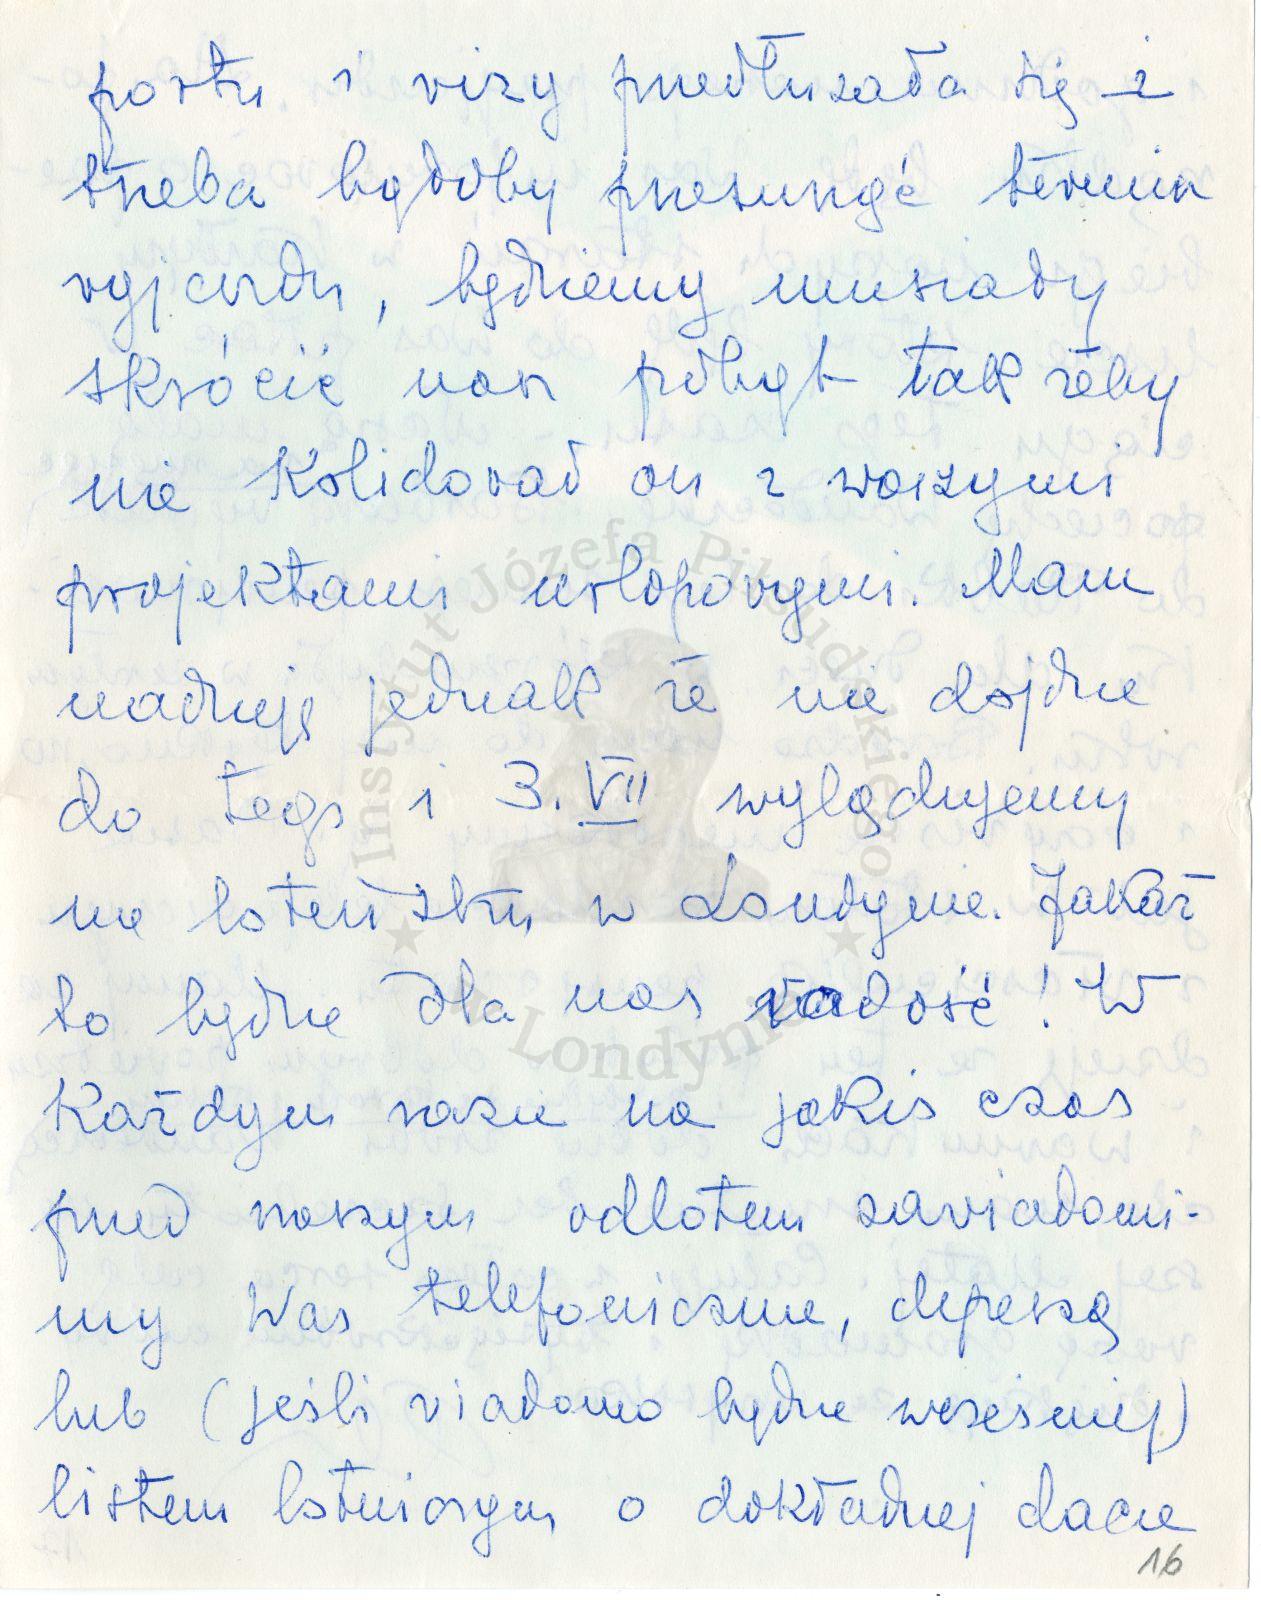 portu i wizy przedłużała się i
trzeba byłoby przesunąć termin
wyjazdu, będziemy musiały
skrócić nasz pobyt tak żeby
nie kolidował on z waszymi
projektami urlopowymi. Mam
nadzieję jednak że nie dojdzie
do tego i 3. VII wylądujemy
na lotnisku w Londynie. Jakaż
to będzie dla nas radość! W
każdym razie na jakiś czas
przed naszym odlotem zawiadomi-
my Was telefonicznie, depeszą
lub (jeśli wiadomo będzie wcześniej)
listem lotniczym o dokładnej dacie
16
Instytut Józefa Piłsudskiego
w Londynie